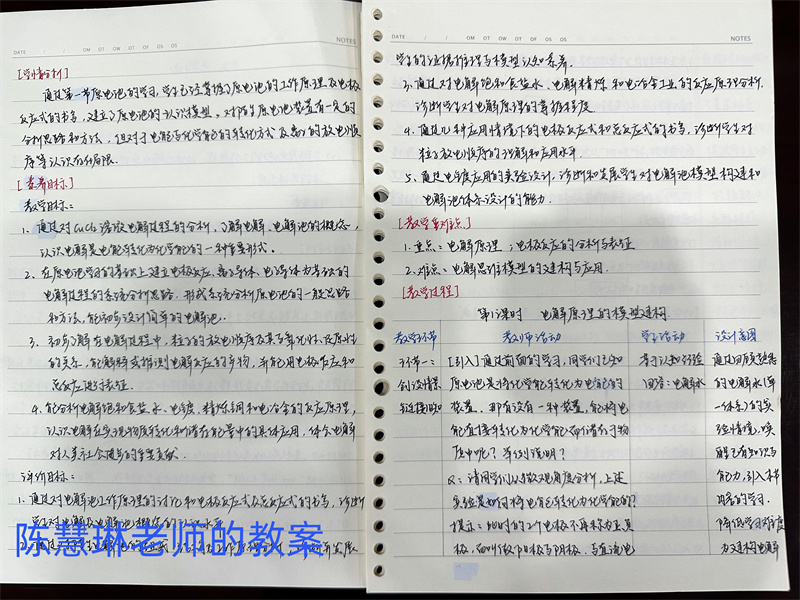 DATE / / OM OT OW OT OF OS OS
NOTES
[学情分析]
通过第一节原电池的学习，学生已经掌握了原电池的工作原理及电极
反应式的书写，建立了原电池的认识模型。对陌生原电池装置有一定的
分析思路和方法，但对于电能转化学能的转化方式及离子的放电顺
序等认识存在局限。
[素养目标]
教学目标：
1、通过对CuCl₂溶液电解过程的分析，了解电解、电解池的概念，
认识电解是电能转化为化学能的一种重要形式。
2、在原电池学习的基础上建立电极反应、离子导体、电子导体为基础的
电解过程的系统分析思路，形成系统分析原电池的一般思路
和方法，能初步设计简单的电解池。
3、初步了解在电解过程中，粒子的放电顺序及其与氧化性、及原性
的关系，能解释或推测电解反应的产物，并能用电极反应和
总反应进行表征。
4、能分析电解饱和食盐水、电镀、精炼铜和电冶金的反应原理，
认识电解在实现物质转化和储存能量中的具体应用，体会电解
对人类社会进步的重要贡献。
评价目标：
1、通过对电解池工作原理的讨论和电极反应式及总反应式的书写，诊断
学生对电解及电解池概念的认识水平
2、通过
陈慧琳老师的教案
DATE / / OM OT OW OT OF OS OS
NOTES
学生的证据推理与模型认知素养。
3、通过对电解饱和食盐水、电解精炼和电冶金工业的反应原理分析，
诊断学生对电解原理的掌握程度
4、通过几种应用情境下的电极反应式和总反应式的书写，诊断学生对
粒子放电顺序的理解和应用水平。
5、通过电镀应用的实验设计，诊断和发展学生对电解池模型构建和
电解池体系设计的能力。
[教学重难点]
1、重点：电解原理；电极反应的分析与表征
2、难点：电解思维模型的建构与应用。
[教学过程]
第1课时 电解原理的模型建构
教学环节 教师活动 学生活动 设计意图
环节一： [引入]通过前面的学习，同学们已知 基于认知经验 通过回顾熟悉
创设情景 原电池是将化学能转化为电能的 回答：电解水 的电解水（单
衔接旧知 装置，那有没有一种装置，能将电 一体系）的实
能直接转化为化学能而储存于物 验情境，唤
质中呢？举例说明？ 醒已有知识与
Q：请同学们从微观角度分析，上述 能力，引入本节
实验是如何将电能转化为化学能的？ 内容的学习，
提示：此时的2个电极不再称为正负 降低学习难度
极，而叫做阳极与阴极，与直流电 为建构电解